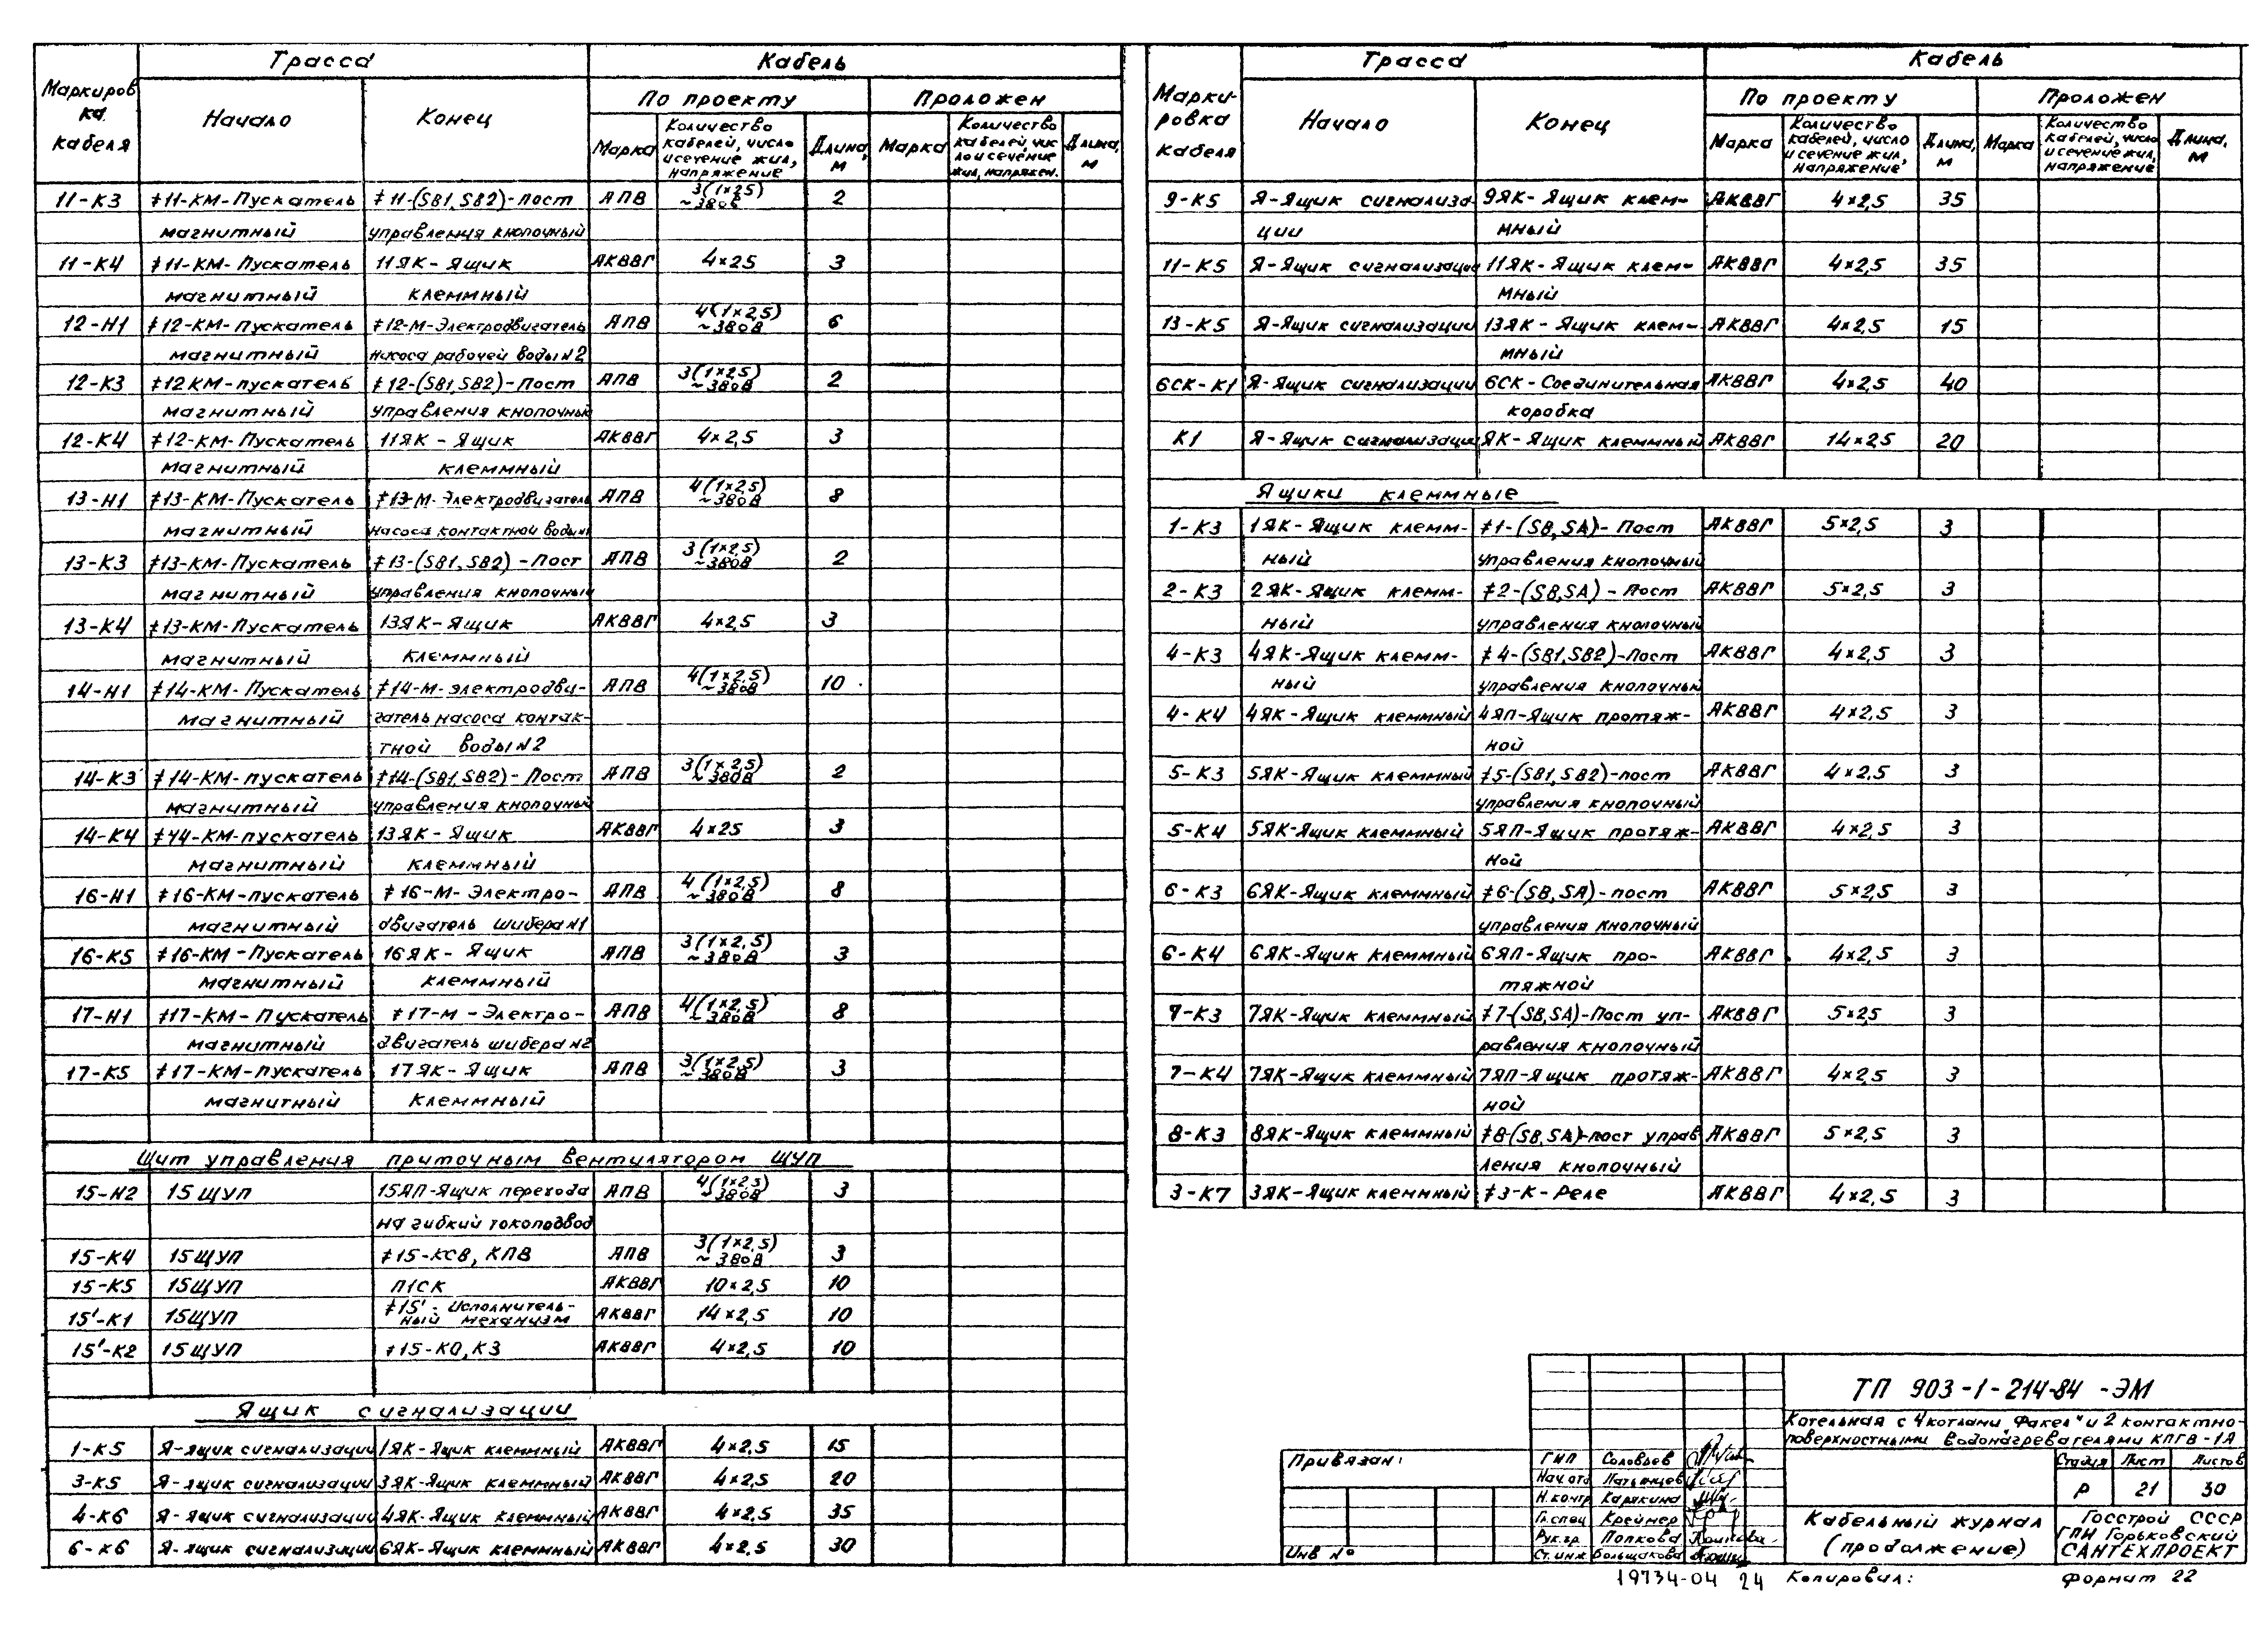 Маркиров
ка
кабеля
Трасса
Кабель
Начало
Конец
По проекту
Проложен
Марка
Количество кабелей, число и сечение жил, напряжение
Длина, м
Марка
Количество кабелей, число и сечение жил, напряжен.
Длина, м
11-К3 ‡11-КМ-Пускатель ‡11-(SB1, SB2)-пост АПВ 3(1×25) ~380в 2
магнитный управления кнопочный
11-К4 ‡11-КМ-Пускатель 11ЯК-Ящик АКВВГ 4×25 3
магнитный клеммный
12-Н1 ‡12-КМ-Пускатель ‡12-М-Электродвигатель АПВ 4(1×2,5) ~380В 6
магнитный насоса рабочей воды N2
12-К3 ‡12КМ-пускатель ‡12-(SB1, SB2)-Пост АПВ 3(1×2,5) ~380В 2
магнитный управления кнопочный
12-К4 ‡12-КМ-Пускатель 11ЯК-Ящик АКВВГ 4×2,5 3
магнитный клеммный
13-Н1 ‡13-КМ-Пускатель ‡13-М-Электродвигатель АПВ 4(1×2,5) ~380В 8
магнитный насоса контактной воды N1
13-К3 ‡13-КМ-Пускатель ‡13-(SB1, SB2)-Пост АПВ 3(1×2,5) ~380В 2
магнитный управления кнопочный
13-К4 ‡13-КМ-Пускатель 13ЯК-Ящик АКВВГ 4×2,5 3
магнитный клеммный
14-Н1 ‡14-КМ-Пускатель ‡14-М-электродви- АПВ 4(1×2,5) ~380В 10
магнитный гатель насоса контак-
тной воды N2
14-К3 ‡14-КМ-пускатель ‡14-(SB1, SB2)-Пост АПВ 3(1×2,5) ~380В 2
магнитный управления кнопочный
14-К4 ‡14-КМ-пускатель 13ЯК-Ящик АКВВГ 4×25 3
магнитный клеммный
16-Н1 ‡16-КМ-пускатель ‡16-М-Электро- АПВ 4(1×2,5) ~380В 8
магнитный двигатель шибера N1
16-К5 ‡16-КМ-Пускатель 16ЯК-Ящик АПВ 3(1×2,5) ~380В 3
магнитный клеммный
17-Н1 ‡17-КМ-Пускатель ‡17-М-Электро- АПВ 4(1×2,5) ~380В 8
магнитный двигатель шибера N2
17-К5 ‡17-КМ-пускатель 17ЯК-Ящик АПВ 3(1×2,5) ~380В 3
магнитный клеммный
Щит управления приточным вентилятором ЩУП
15-Н2 15ЩУП 15ЯП-Ящик перехода АПВ 4(1×2,5) ~380В 3
на гибкий токоподвод
15-К4 15ЩУП ‡15-КСВ, КПВ АПВ 3(1×2,5) ~380В 3
15-К5 15ЩУП П1СК АКВВГ 10×2,5 10
15'-К1 15ЩУП ‡15'-Исполнитель-ный механизм АКВВГ 14×2,5 10
15'-К2 15ЩУП ‡15-КО, КЗ АКВВГ 4×2,5 10
Ящик сигнализации
1-К5 Я-ящик сигнализации 1ЯК-Ящик клеммный АКВВГ 4×2,5 15
3-К5 Я-ящик сигнализации 3ЯК-Ящик клеммный АКВВГ 4×2,5 20
4-К6 Я-ящик сигнализации 4ЯК-Ящик клеммный АКВВГ 4×2,5 35
6-К6 Я-ящик сигнализации 6ЯК-Ящик клеммный АКВВГ 4×2,5 30
Марки-
ровка
кабеля
Трасса
Кабель
Начало
Конец
По проекту
Проложен
Марка
Количество кабелей, число и сечение жил, напряжение
Длина, м
Марка
Количество кабелей, число и сечение жил, напряжение
Длина, м
9-К5 Я-Ящик сигнализа 9ЯК-Ящик клем- АКВВГ 4×2,5 35
ции мный
11-К5 Я-Ящик сигнализации 11ЯК-Ящик клем- АКВВГ 4×2,5 35
мный
13-К5 Я-Ящик сигнализации 13ЯК-Ящик клем- АКВВГ 4×2,5 15
мный
6СК-К1 Я-Ящик сигнализации 6СК-Соединительная АКВВГ 4×2,5 40
коробка
К1 Я-Ящик сигнализации ЯК-Ящик клеммный АКВВГ 14×25 20
Ящики клеммные
1-К3 1ЯК-Ящик клемм- ‡1-(SB, SA)-Пост АКВВГ 5×2,5 3
ный управления кнопочный
2-К3 2ЯК-Ящик клемм- ‡2-(SB, SA)-Пост АКВВГ 5×2,5 3
ный управления кнопочный
4-К3 4ЯК-Ящик клемм- ‡4-(SB1, SB2)-Пост АКВВГ 4×2,5 3
ный управления кнопочный
4-К4 4ЯК-Ящик клеммный 4ЯП-Ящик протяж- АКВВГ 4×2,5 3
ной
5-К3 5ЯК-Ящик клеммный ‡5-(SB1, SB2)-пост АКВВГ 4×2,5 3
управления кнопочный
5-К4 5ЯК-Ящик клеммный 5ЯП-Ящик протяж- АКВВГ 4×2,5 3
ной
6-К3 6ЯК-Ящик клеммный ‡6-(SB, SA)-пост АКВВГ 5×2,5 3
управления кнопочный
6-К4 6ЯК-Ящик клеммный 6ЯП-Ящик про- АКВВГ 4×2,5 3
тяжной
7-К3 7ЯК-Ящик клеммный ‡7-(SB, SA)-Пост уп- АКВВГ 5×25 3
равления кнопочный
7-К4 7ЯК-Ящик клеммный 7ЯП-Ящик протяж- АКВВГ 4×2,5 3
ной
8-К3 8ЯК-Ящик клеммный ‡8-(SB, SA)-пост управ АКВВГ 5×2,5 3
ления кнопочный
3-К7 3ЯК-Ящик клеммный ‡3-К-Реле АКВВГ 4×2,5 3
ТП 903-1-214-84 -ЭМ
Котельная с 4 котлами „Факел" и 2 контактно-
поверхностными водонагревателями КПГВ-1А
Стадия Лист Листов
Р 21 30
Кабельный журнал
(продолжение)
Госстрой СССР
ГПИ Горьковский
САНТЕХПРОЕКТ
Привязан:
Инв №
ГИП Соловьев
Нач.отд Латынцев
Н.контр Карякина
Гл.спец Креймер
Рук.гр Попкова
Ст.инж Большакова
19734-04 24
Копировал:
формат 22